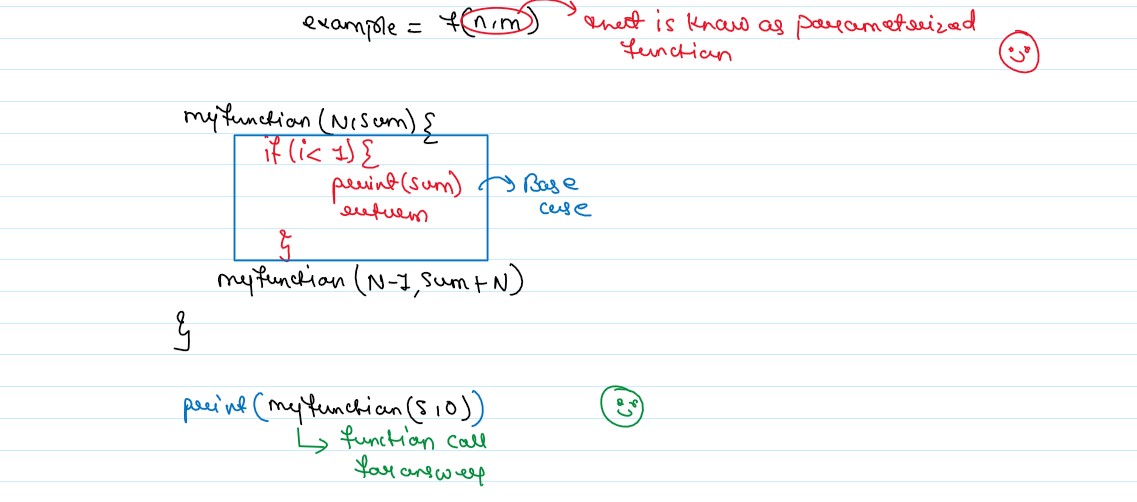 example = f(n,m) → that is know as parameterized
function
myfunction(N,Sum) {
if (i < 1) {
print(sum) → Base
return case
}
myfunction (N-1, Sum + N)
}
print(myfunction(5,0))
↳ function call
for answer